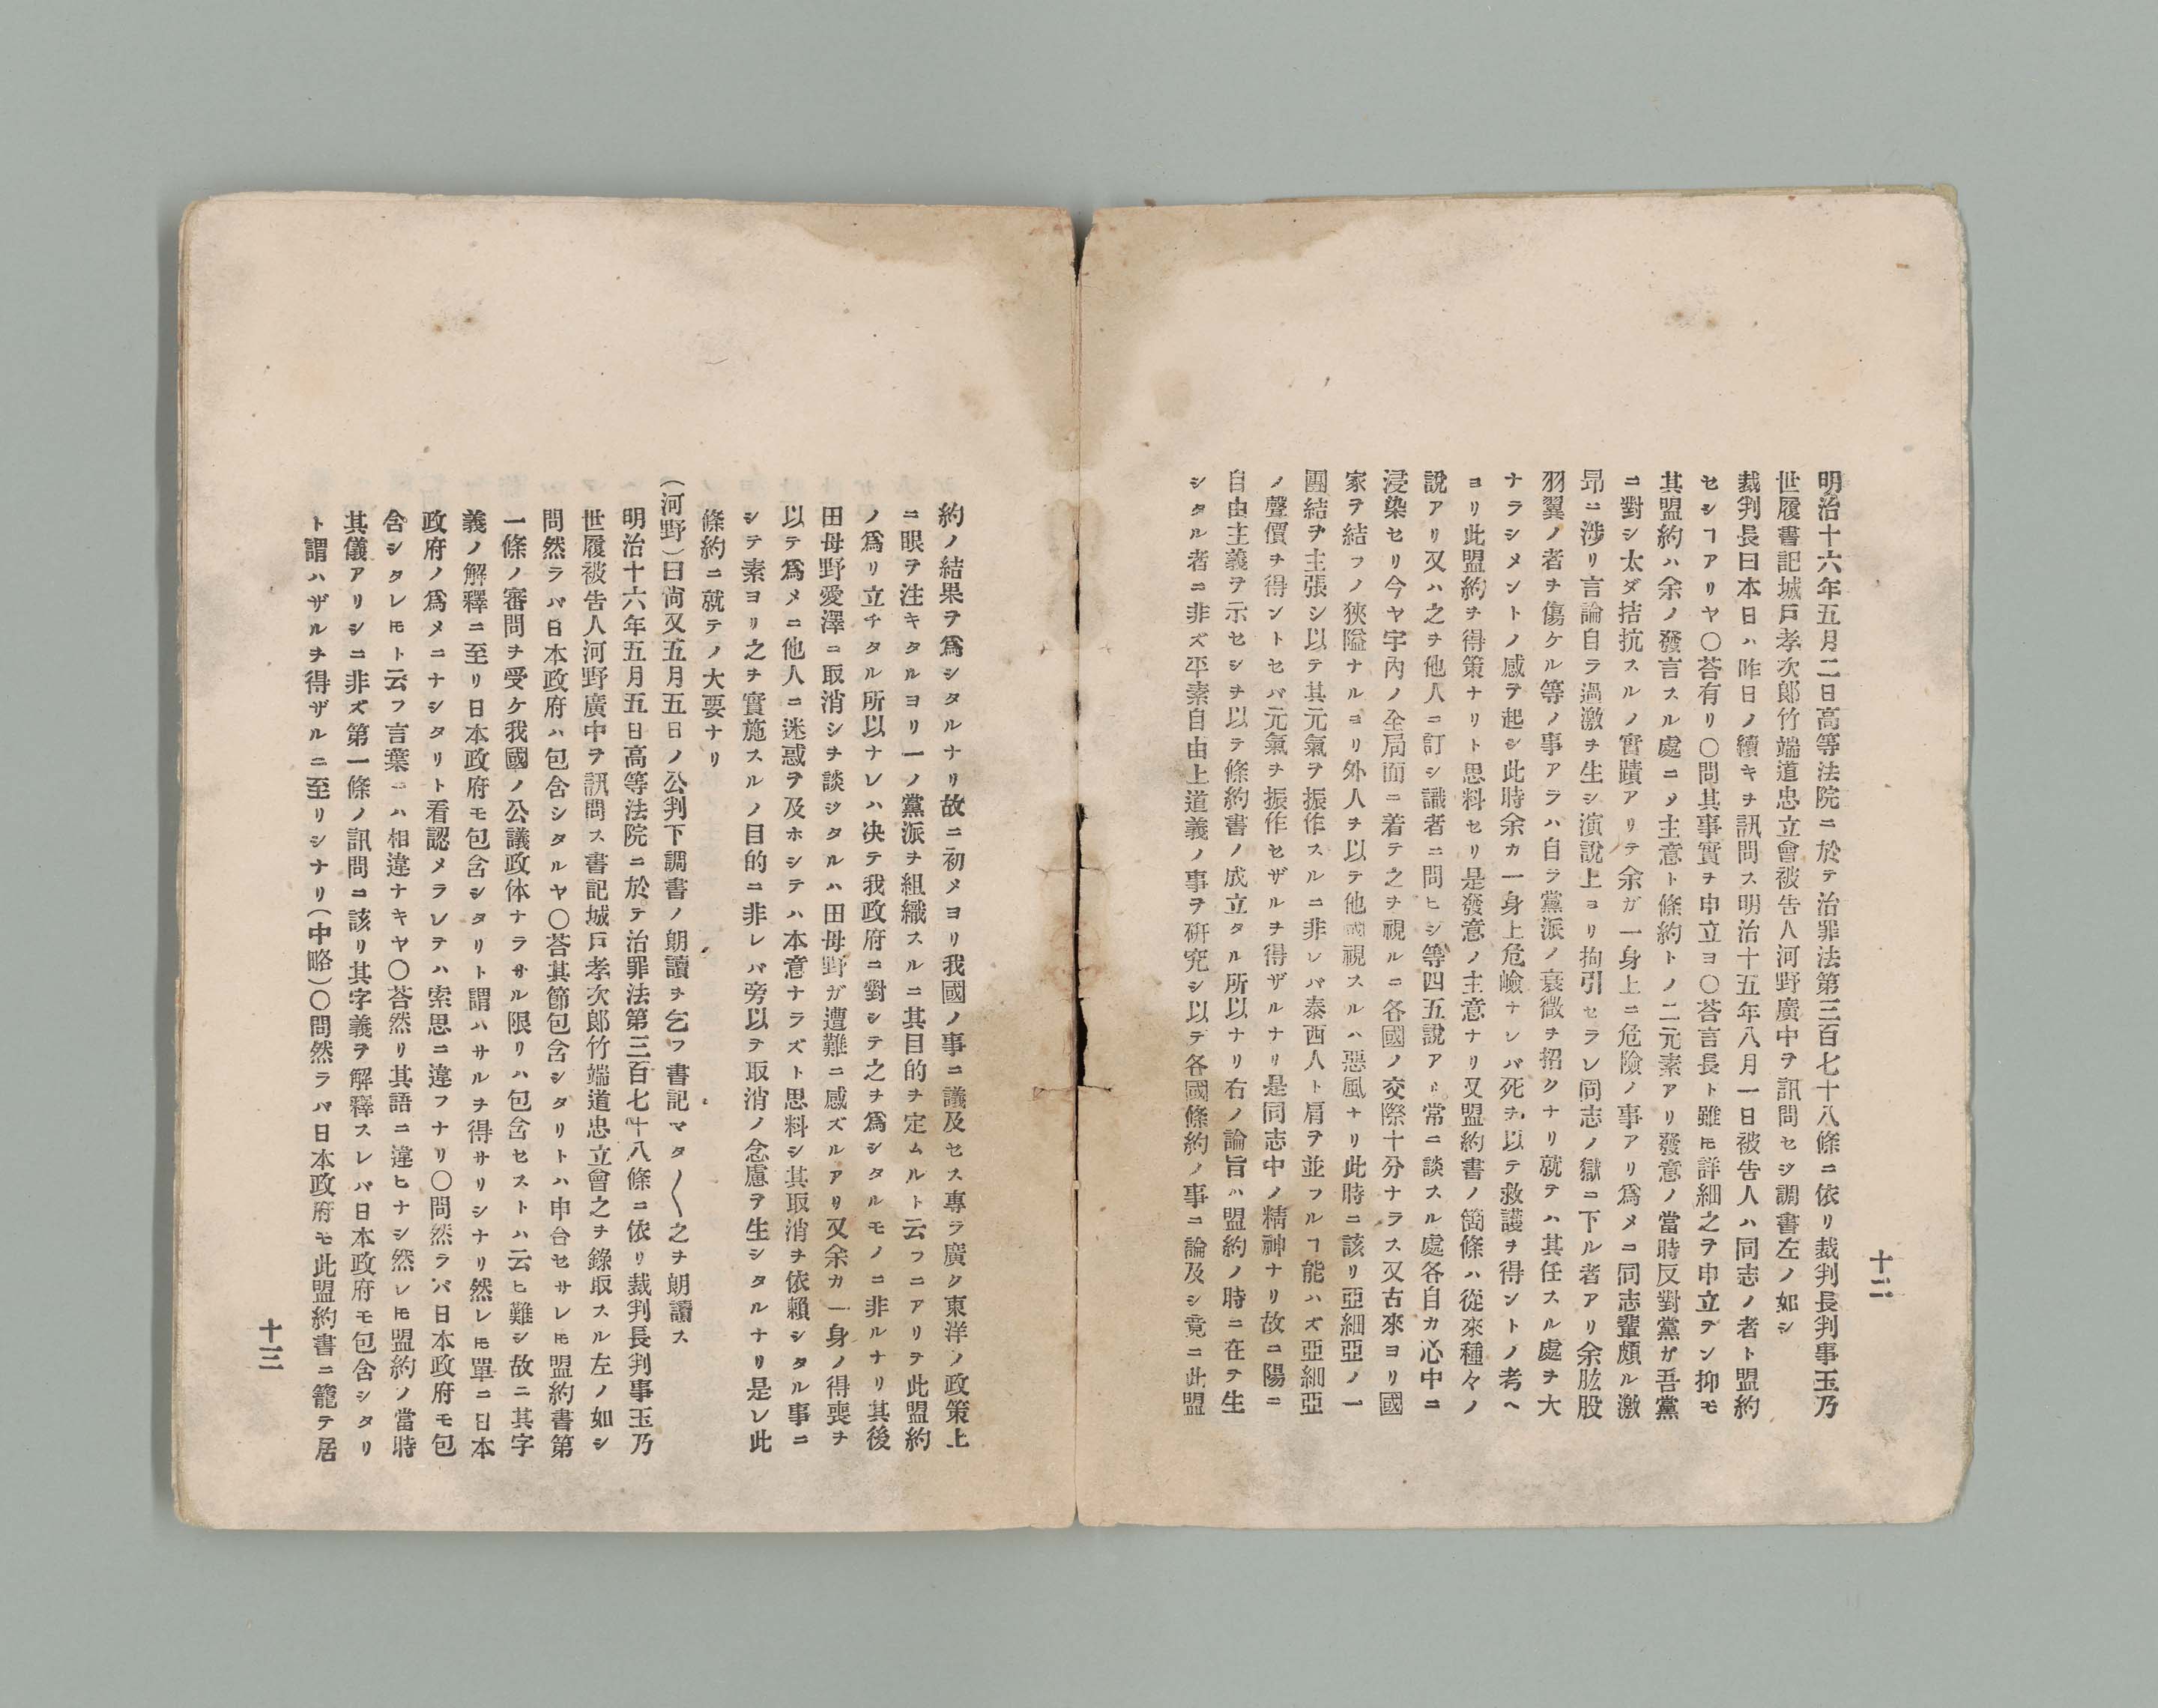 十二
明治十六年五月二日高等法院ニ於テ治罪法第三百七十八條ニ依リ裁判長判事玉乃
世履書記城戸孝次郎竹端道忠立會被告人河野廣中ヲ訊問セシ調書左ノ如シ
裁判長曰本日ハ昨日ノ續キヲ訊問ス明治十五年八月一日被告人ハ同志ノ者ト盟約
セシヿアリヤ〇荅有リ〇問其事實ヲ申立ヨ〇荅言長ト雖𪜈詳細之ヲ申立テン抑モ
其盟約ハ余ノ發言スル處ニ〆主意ト條約トノ二元素アリ發意ノ當時反對黨ガ吾黨
ニ對シ太ダ拮抗スルノ實蹟アリテ余ガ一身上ニ危險ノ事アリ爲メニ同志輩頗ル激
昂ニ渉リ言論自ラ過激ヲ生シ演說上ヨリ拘引セラレ同志ノ獄ニ下ル者アリ余肱股
羽翼ノ者ヲ傷ケル等ノ事アラハ自ラ黨派ノ衰微ヲ招クナリ就テハ其任スル處ヲ大
ナラシメントノ感ヲ起シ此時余カ一身上危嶮ナレバ死ヲ以テ救護ヲ得ントノ考ヘ
ヨリ此盟約ヲ得策ナリト思料セリ是發意ノ主意ナリ又盟約書ノ箇條ハ從來種々ノ
說アリ又ハ之ヲ他人ニ訂シ識者ニ問ヒシ等四五說アリ常ニ談スル處各自カ心中ニ
浸染セリ今ヤ宇内ノ全局面ニ着テ之ヲ視ルニ各國ノ交際十分ナラス又古來ヨリ國
家ヲ結フノ狹隘ナルヨリ外人ヲ以テ他國視スルハ惡風ナリ此時ニ該リ亞細亞ノ一
團結ヲ主張シ以テ其元氣ヲ振作スルニ非レバ泰西人ト肩ヲ並フルヿ能ハズ亞細亞
ノ聲價ヲ得ントセバ元氣ヲ振作セザルヲ得ザルナリ是同志中ノ精神ナリ故ニ陽ニ
自由主義ヲ示セシヲ以テ條約書ノ成立タル所以ナリ右ノ論旨ハ盟約ノ時ニ在テ生
シタル者ニ非ズ平素自由上道義ノ事ヲ研究シ以テ各國條約ノ事ニ論及シ竟ニ此盟
約ノ結果ヲ爲シタルナリ故ニ初メヨリ我國ノ事ニ議及セス專ラ廣ク東洋ノ政策上
ニ眼ヲ注キタルヨリ一ノ黨派ヲ組織スルニ其目的ヲ定ムルト云フニアリテ此盟約
ノ爲リ立チタル所以ナレハ决テ我政府ニ對シテ之ヲ爲シタルモノニ非ルナリ其後
田母野愛澤ニ取消シヲ談ジタルハ田母野ガ遭難ニ感ズルアリ又余カ一身ノ得喪ヲ
以テ爲メニ他人ニ迷惑ヲ及ホシテハ本意ナラズト思料シ其取消ヲ依賴シタル事ニ
シテ素ヨリ之ヲ實施スルノ目的ニ非レバ旁以テ取消ノ念慮ヲ生シタルナリ是レ此
條約ニ就テノ大要ナリ
(河野)曰尙又五月五日ノ公判下調書ノ朗讀ヲ乞フ書記マタ〱之ヲ朗讀ス
明治十六年五月五日高等法院ニ於テ治罪法第三百七十八條ニ依リ裁判長判事玉乃
世履被告人河野廣中ヲ訊問ス書記城戸孝次郎竹端道忠立會之ヲ錄取スル左ノ如シ
問然ラバ日本政府ハ包含シタルヤ〇荅其節包含シタリトハ申合セサレ𪜈盟約書第
一條ノ審問ヲ受ケ我國ノ公議政体ナラサル限リハ包含セストハ云ヒ難シ故ニ其字
義ノ解釋ニ至リ日本政府モ包含シタリト謂ハサルヲ得サリシナリ然レ𪜈單ニ日本
政府ノ爲メニナシタリト看認メラレテハ索思ニ違フナリ〇問然ラバ日本政府モ包
含シタレ𪜈ト云フ言葉ニハ相違ナキヤ〇荅然リ其語ニ違ヒナシ然レ𪜈盟約ノ當時
其儀アリシニ非ズ第一條ノ訊問ニ該リ其字義ヲ解釋スレバ日本政府モ包含シタリ
ト謂ハザルヲ得ザルニ至リシナリ(中略)〇問然ラバ日本政府モ此盟約書ニ籠テ居
十三